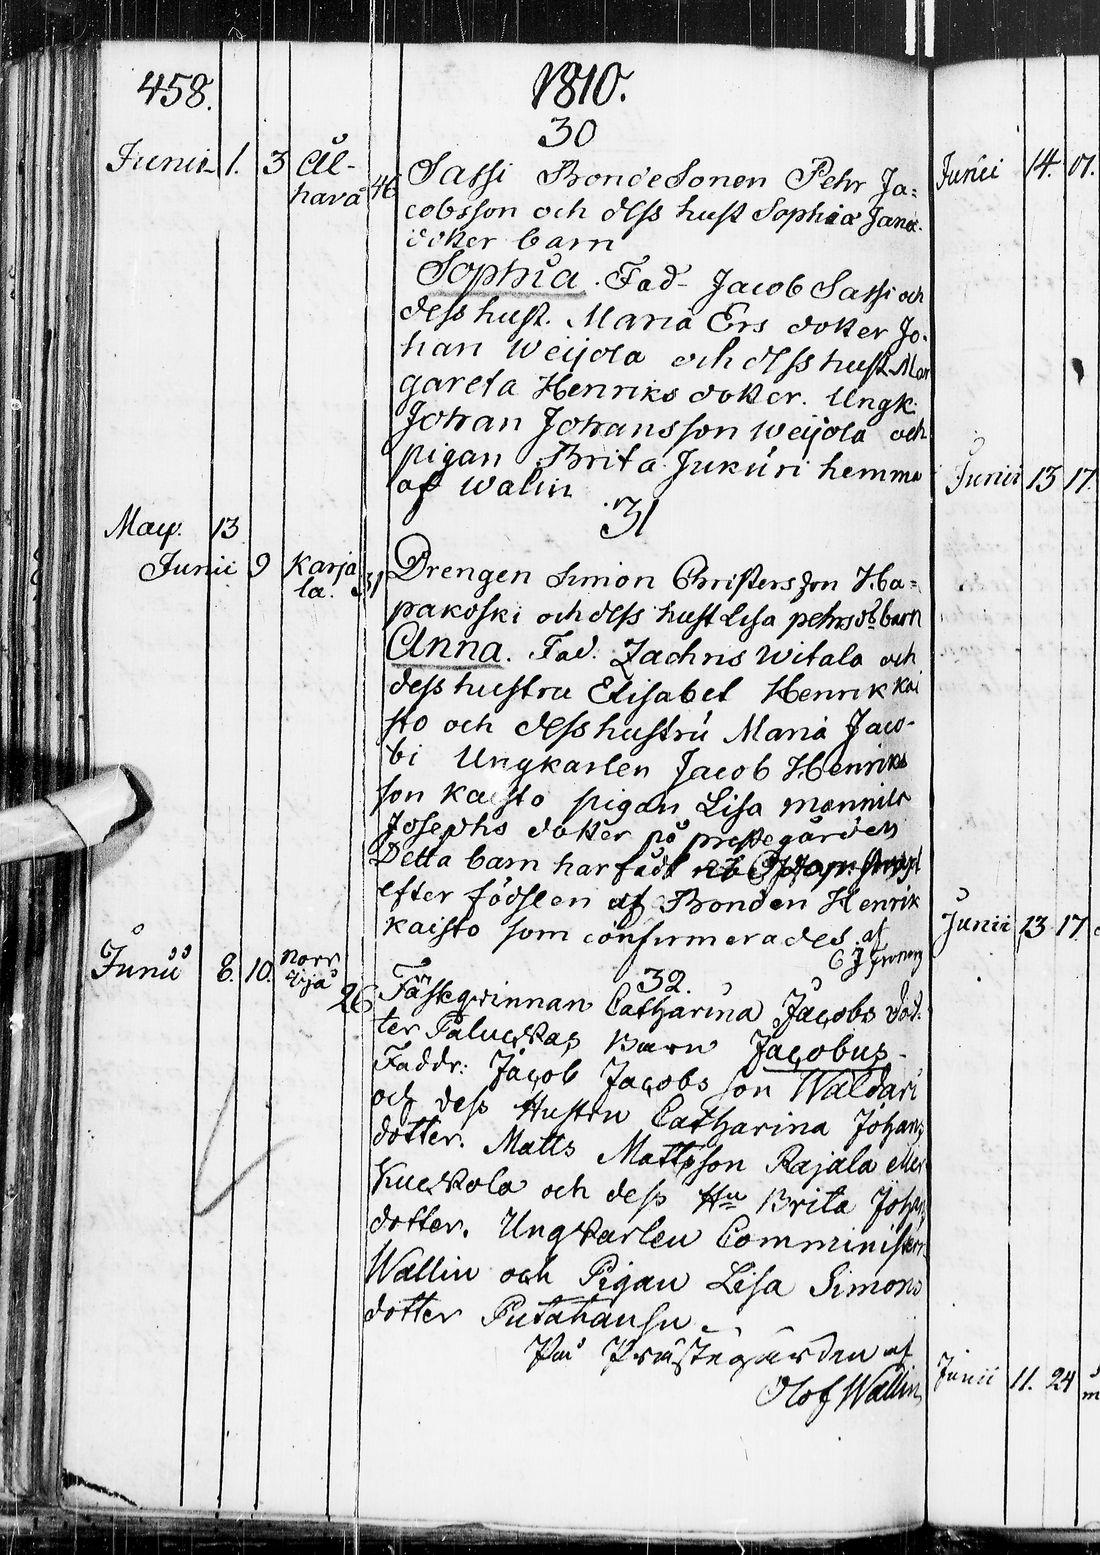 458.
1810.
30
Junii 1. 3 Ål-
hava 46 Sassi BondeSonen Pehr Ja=
cobsson och dess hust Sophia Jana-
dotter barn
Sophia. Fad- Jacob Sassi och
dess hust. Maria Ers dotter Jo-
han Weijola och dess hust. Mar
gareta Henriks dotter. Ungk
Johan Johansson Weijola och
pigan Brita Jukuri hemma
af Walin
31
May. 13
Junii 9 Karja
la. 31 Drengen Simon Christersson Ha=
pakoski och dess hust Lisa pehrs dr barn
Anna. Fad. Zachris Witala och
dess hustru Elisabet Henrik Kai
sto och dess hustru Maria Jaco-
bi Ungkarlen Jacob Henriks
son Kaisto pigan Lisa Mannila
Josephs dotter på prestegården
Detta barn har fådt
efter födslen af Bonden Henrik
Kaisto som confirmerades af
32.
Junii 8. 10. Norr
wijå 26 Fästeqwinnan Catharina Jacobs dot-
ter Paluckas Barn Jacobus-
Faddr: Jacob Jacobs son Waldari
och dess Hustru Catharina Johans
dotter. Matts Mattsson Rajala
Kuckola och dess Hu Brita Johans
dotter. Ungkarlen Comminister
Wallin och Pigan Lisa Simons
dotter Putahansu.
På Prästegården af
Olof Wallin
Junii 14. 01.
Junii 13 17.
Junii 13 17.
Junii 11. 24